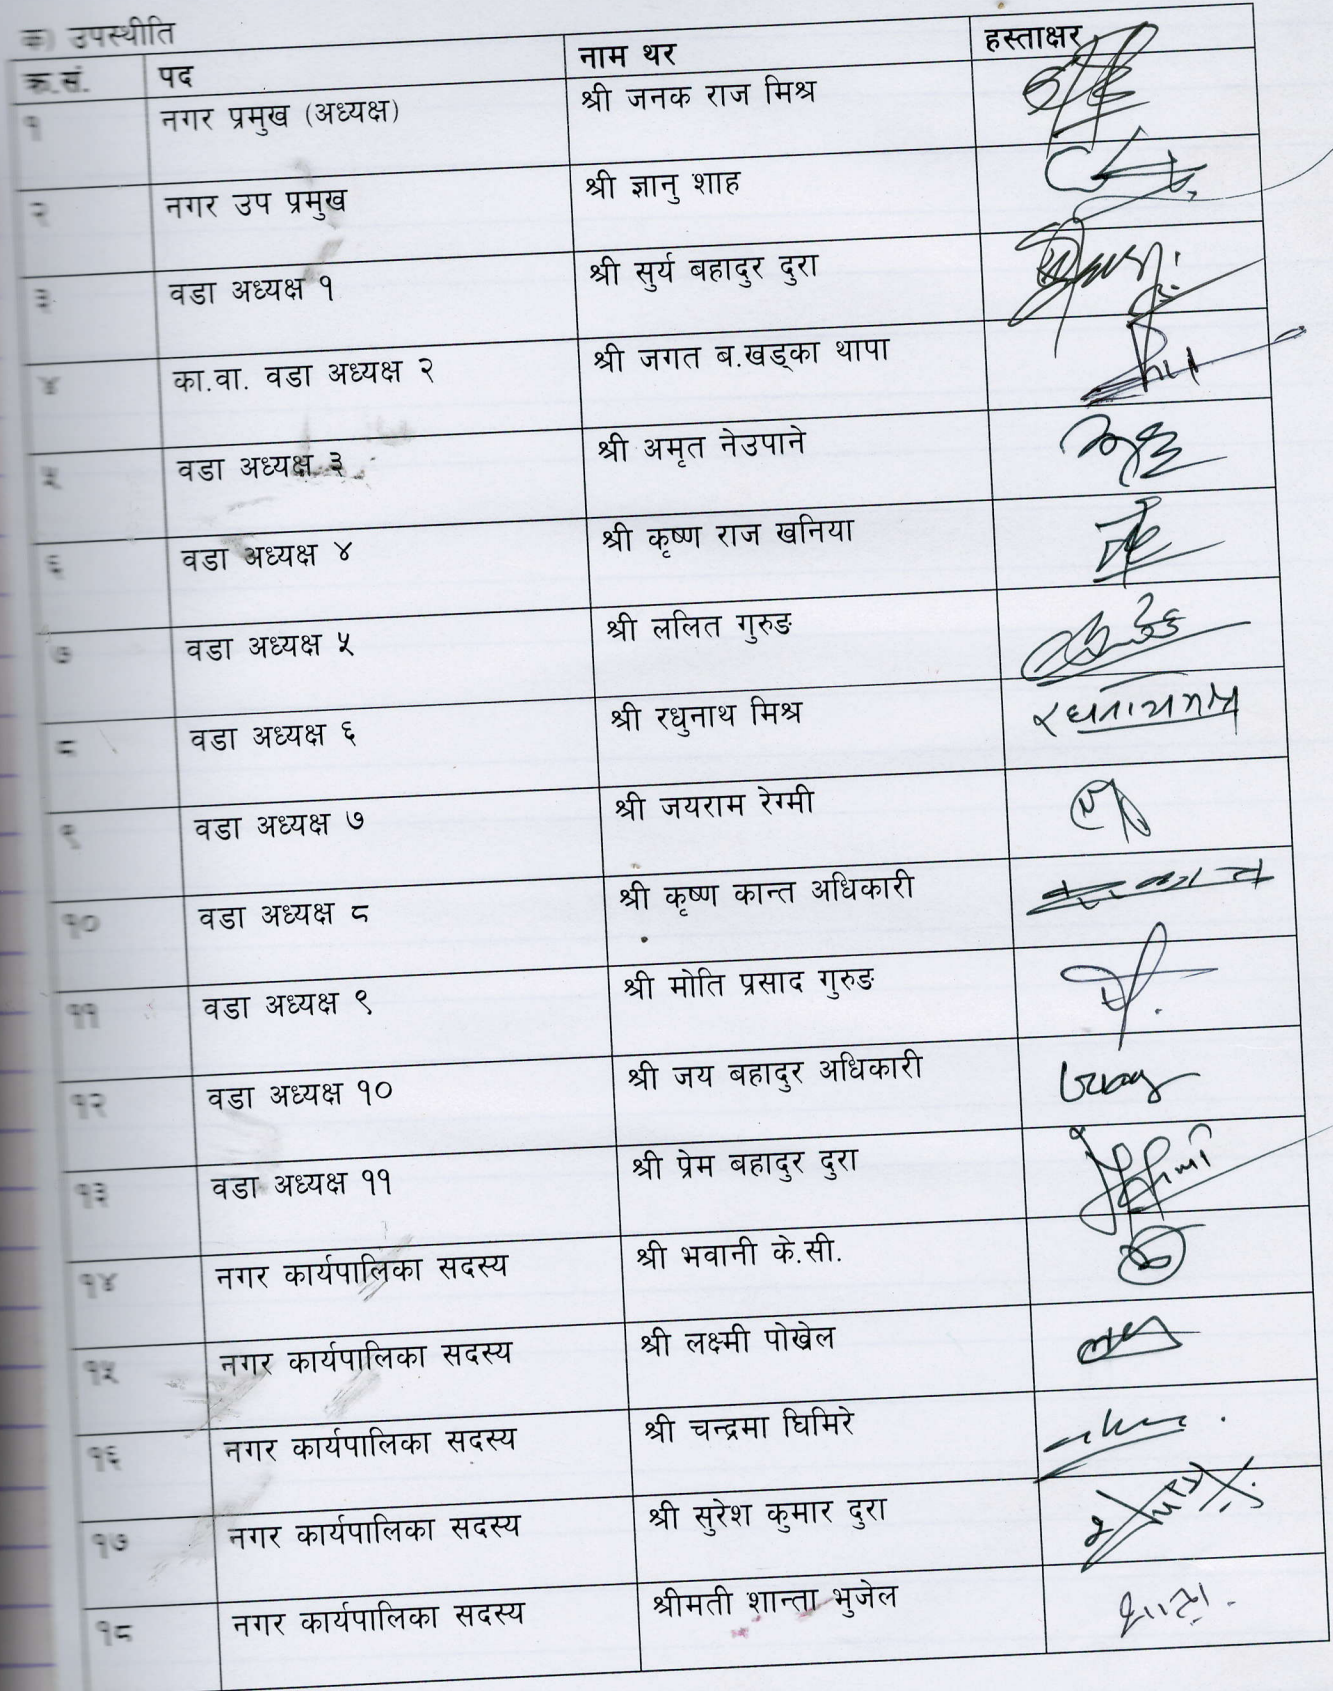 क) उपस्थीति
क्र.सं. पद नाम थर हस्ताक्षर
१ नगर प्रमुख (अध्यक्ष) श्री जनक राज मिश्र
२ नगर उप प्रमुख श्री ज्ञानु शाह
३ वडा अध्यक्ष १ श्री सुर्य बहादुर दुरा
४ का.वा. वडा अध्यक्ष २ श्री जगत ब.खड्का थापा
५ वडा अध्यक्ष ३ श्री अमृत नेउपाने
६ वडा अध्यक्ष ४ श्री कृष्ण राज खनिया
७ वडा अध्यक्ष ५ श्री ललित गुरुङ
८ वडा अध्यक्ष ६ श्री रधुनाथ मिश्र
९ वडा अध्यक्ष ७ श्री जयराम रेग्मी
१० वडा अध्यक्ष ८ श्री कृष्ण कान्त अधिकारी
११ वडा अध्यक्ष ९ श्री मोति प्रसाद गुरुङ
१२ वडा अध्यक्ष १० श्री जय बहादुर अधिकारी
१३ वडा अध्यक्ष ११ श्री प्रेम बहादुर दुरा
१४ नगर कार्यपालिका सदस्य श्री भवानी के.सी.
१५ नगर कार्यपालिका सदस्य श्री लक्ष्मी पोखेल
१६ नगर कार्यपालिका सदस्य श्री चन्द्रमा घिमिरे
१७ नगर कार्यपालिका सदस्य श्री सुरेश कुमार दुरा
१८ नगर कार्यपालिका सदस्य श्रीमती शान्ता भुजेल